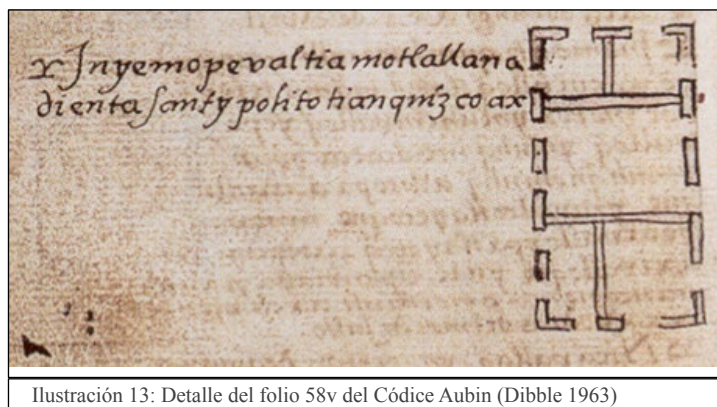 r Jnyemopevaltiamotlallana
dienta santy polito tianquizco ax
Ilustración 13: Detalle del folio 58v del Códice Aubin (Dibble 1963)